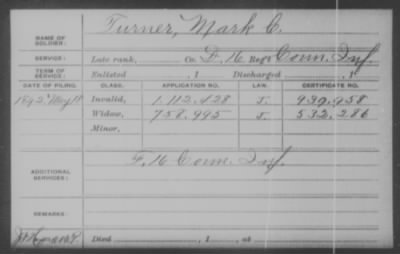 NAME OF SOLDIER: Turner, Mark C.
SERVICE: Late rank, Co. F, 16 Reg't Conn. Inf.
TERM OF SERVICE: Enlisted , 1 Discharged , 1
DATE OF FILING. CLASS. APPLICATION NO. LAW. CERTIFICATE NO.
1892 May 18 Invalid, 1.112.428 J.
Widow, 758.995 J. 532.286
Minor,
F. 16 Conn. Inf.
ADDITIONAL SERVICES:
REMARKS:
Died , 1 , at